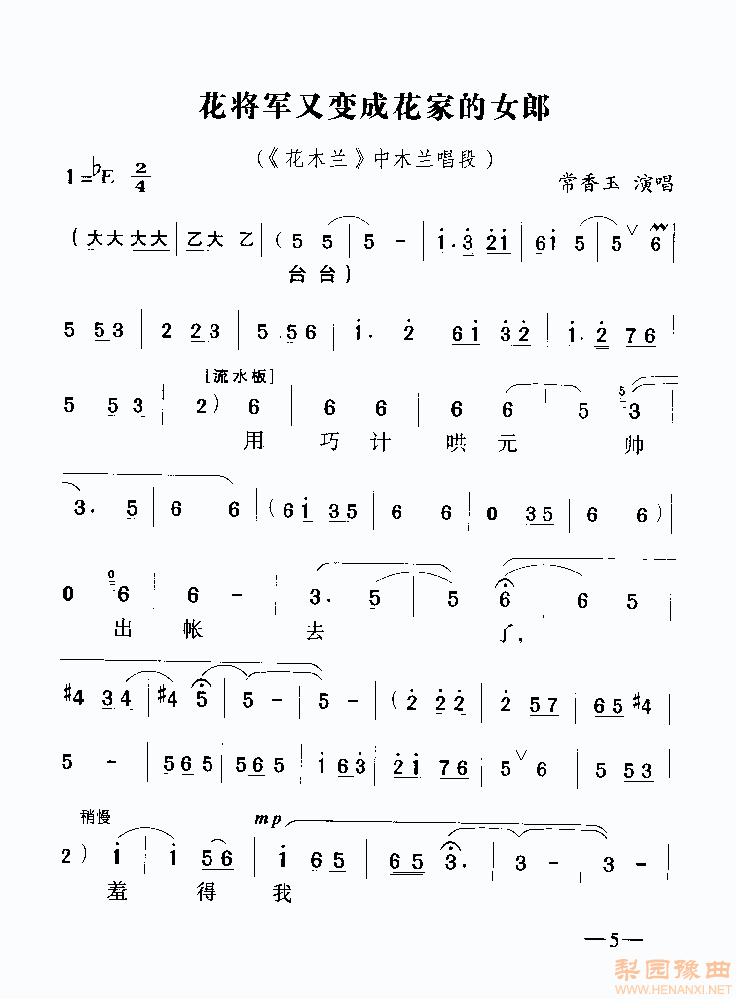 花将军又变成花家的女郎
(《花木兰》中木兰唱段)
1=♭E 2/4
常香玉 演唱
(大大 大大 | 乙大 乙 | (5 5 | 5 - | 1. 3 21 | 61 5 | 5 ∨ 6 |
台台)
5 53 | 2 23 | 5 .56 | 1. 2 | 61 32 | 1. 2 76 |
[流水板]
5 53 | 2) 6 | 6 6 | 6 6 | 5 3 |
用 巧 计 哄 元 帅
3. 5 | 6 6 | (61 35 | 6 6 | 0 35 | 6 6) |
0 6 | 6 - | 3. 5 | 5 6 | 6 5 |
出 帐 去 了,
#4 34 | #4 5 | 5 - | 5 - | (2 22 | 2 57 | 65 #4 |
5 - | 565 | 565 | 1 63 | 21 76 | 5 ∨ 6 | 5 35 |
稍慢 mp
2) 1 | 1 56 | 1 65 | 65 3. | 3 - | 3 - |
羞 得 我
—5—
梨园豫曲
WWW.HENANXI.NET